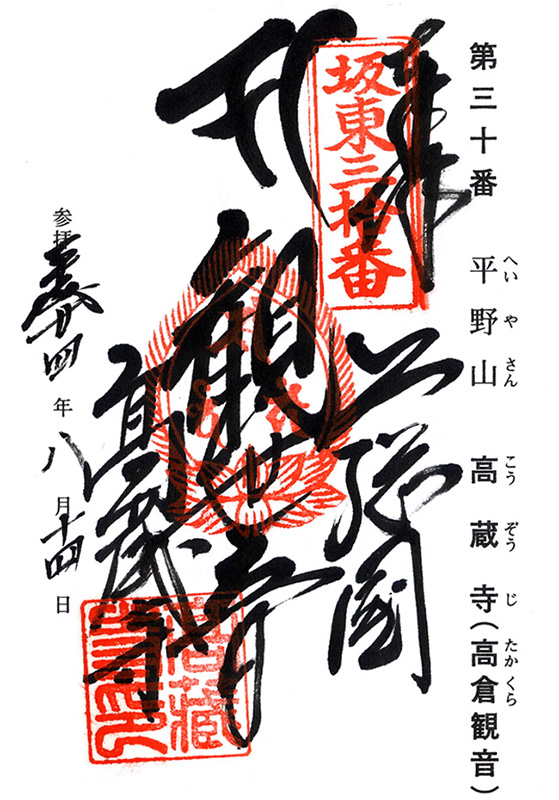 第三十番 平野山 高蔵寺(高倉観音)
へいやさん こうぞうじ たかくら
奉拝
坂東三拾番
上総国
観世音
高蔵寺
高蔵寺印
参拝 平成廿四年八月十四日